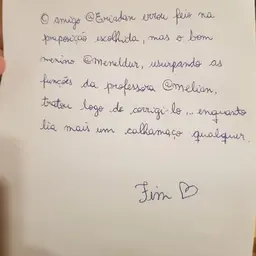 O amigo @Eriadan errou feio na
preposição escolhida, mas o bom
menino @meneldur, usurpando as
funções da professora @melian,
tratou logo de corrigi-lo... enquanto
lia mais um calhamaço qualquer.
Fim ♡